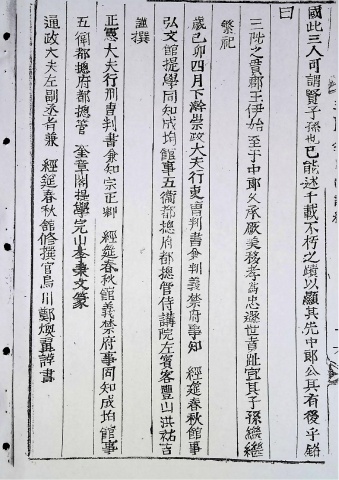 國此三人可謂賢子孫也已能述千載不朽之蹟以顯其先中郞公其有後乎銘
曰
三階之貴郡王伊始至于中郞乂承厥美移孝爲忠遯世耆趾宜其子孫繼繼
繁祀
歲己卯四月下澣崇政大夫行吏曹判書兼判義禁府事知 經筵春秋館事
弘文館提學同知成均館事五衛都摠府都摠管侍講院左賓客豐山洪祐吉
謹撰
正憲大夫行刑曹判書兼知宗正卿 經筵春秋館義禁府事同知成均館事
五衛都摠府都摠管 奎章閣提學完山李秉文篆
通政大夫左副丞旨兼 經筵春秋館修撰官烏川鄭 書